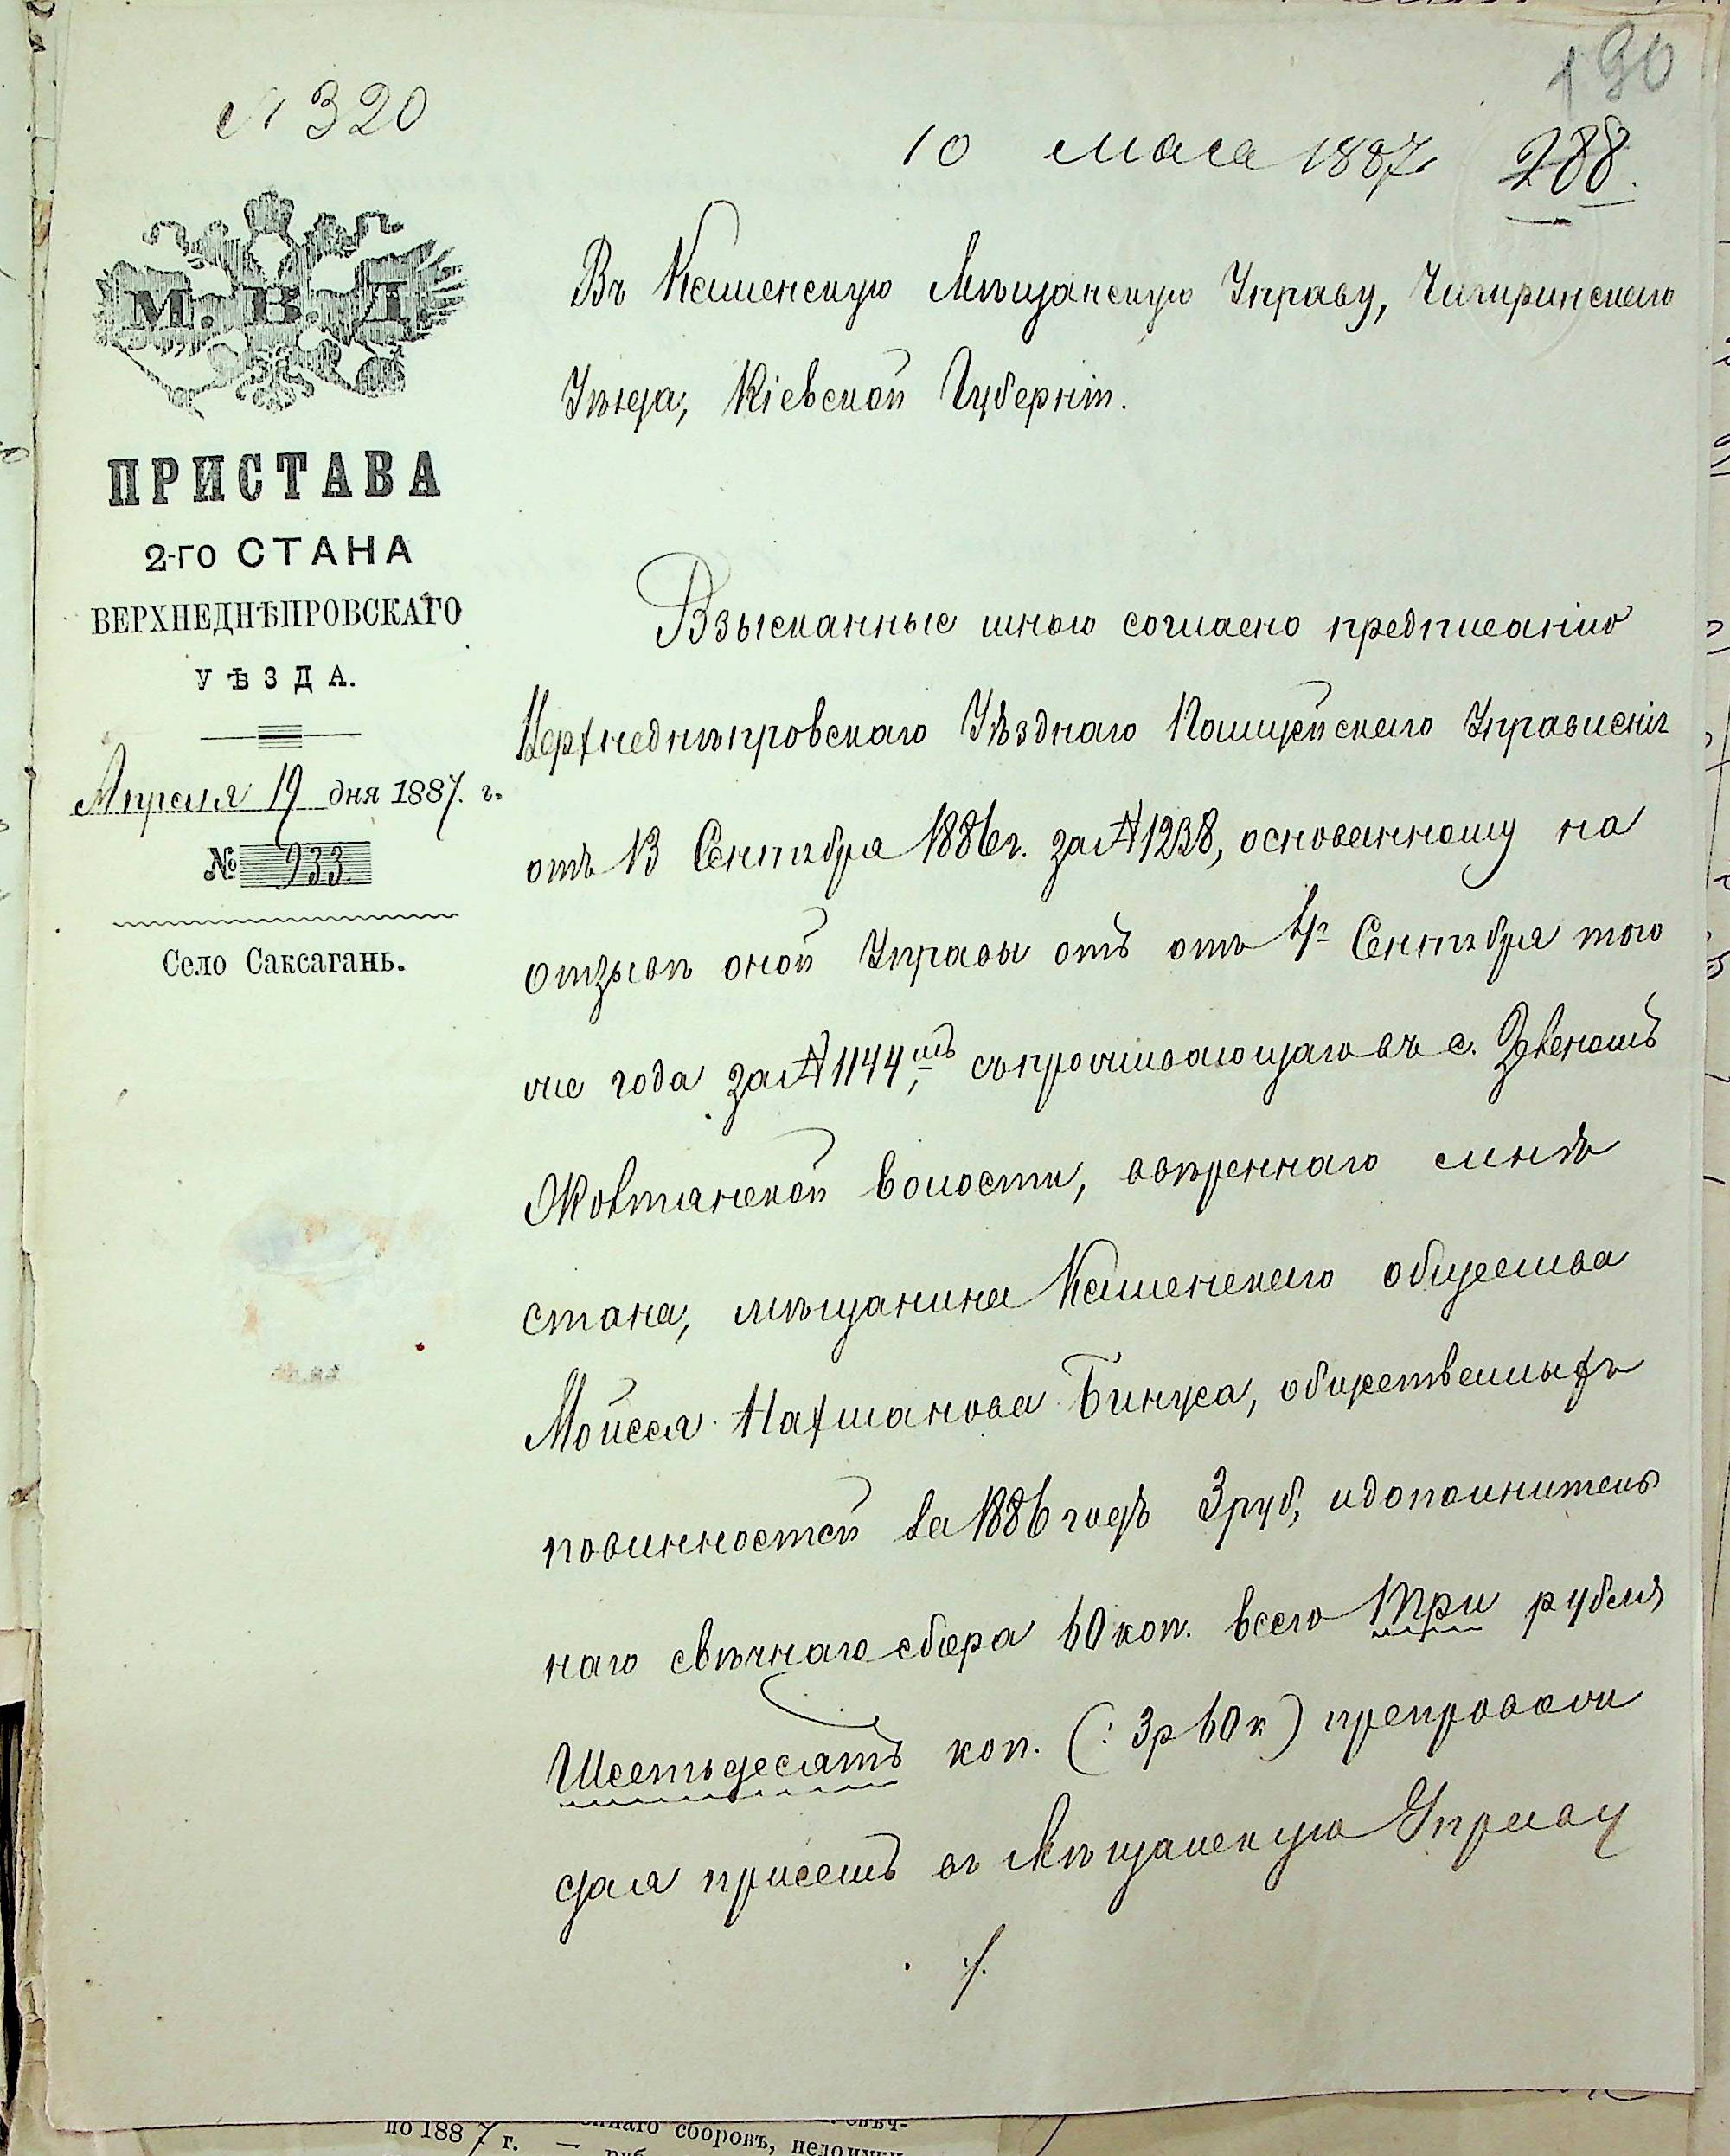 190
№ 320
10 мая 1887 г.
288.
М. В. Д.
ПРИСТАВА
2-го СТАНА
ВЕРХНЕДНѢПРОВСКАГО
УѢЗДА.
Апреля 19 дня 1887. г.
№ 933.
Село Саксагань.
Въ Каменскую Мѣщанскую Управу, Чигиринскаго
Уѣзда, Кіевской Губерніи.
Взысканные мною согласно предписанію
Верхнеднѣпровскаго Уѣзднаго Полицейскаго Управленія
отъ 13 Сентября 1886 г. за № 1238, основанному на
отзывѣ оной Управы отъ отъ 4го Сентября того
же года за № 1144, съ проживающаго въ с.
Жовтянской волости, ввѣреннаго мнѣ
стана, мѣщанина Каменскаго общества
Мойсея Нахманова Бинуса, общественныхъ
повинностей за 1886 годъ 3 руб, и дополнитель
наго свѣчнаго сбора 60 коп. всего Три рубля
Шестьдесятъ коп. (: 3 р 60 к) препровож
дая при семъ въ Мѣщанскую Управу
./.
по 1887 г. —
сборовъ,